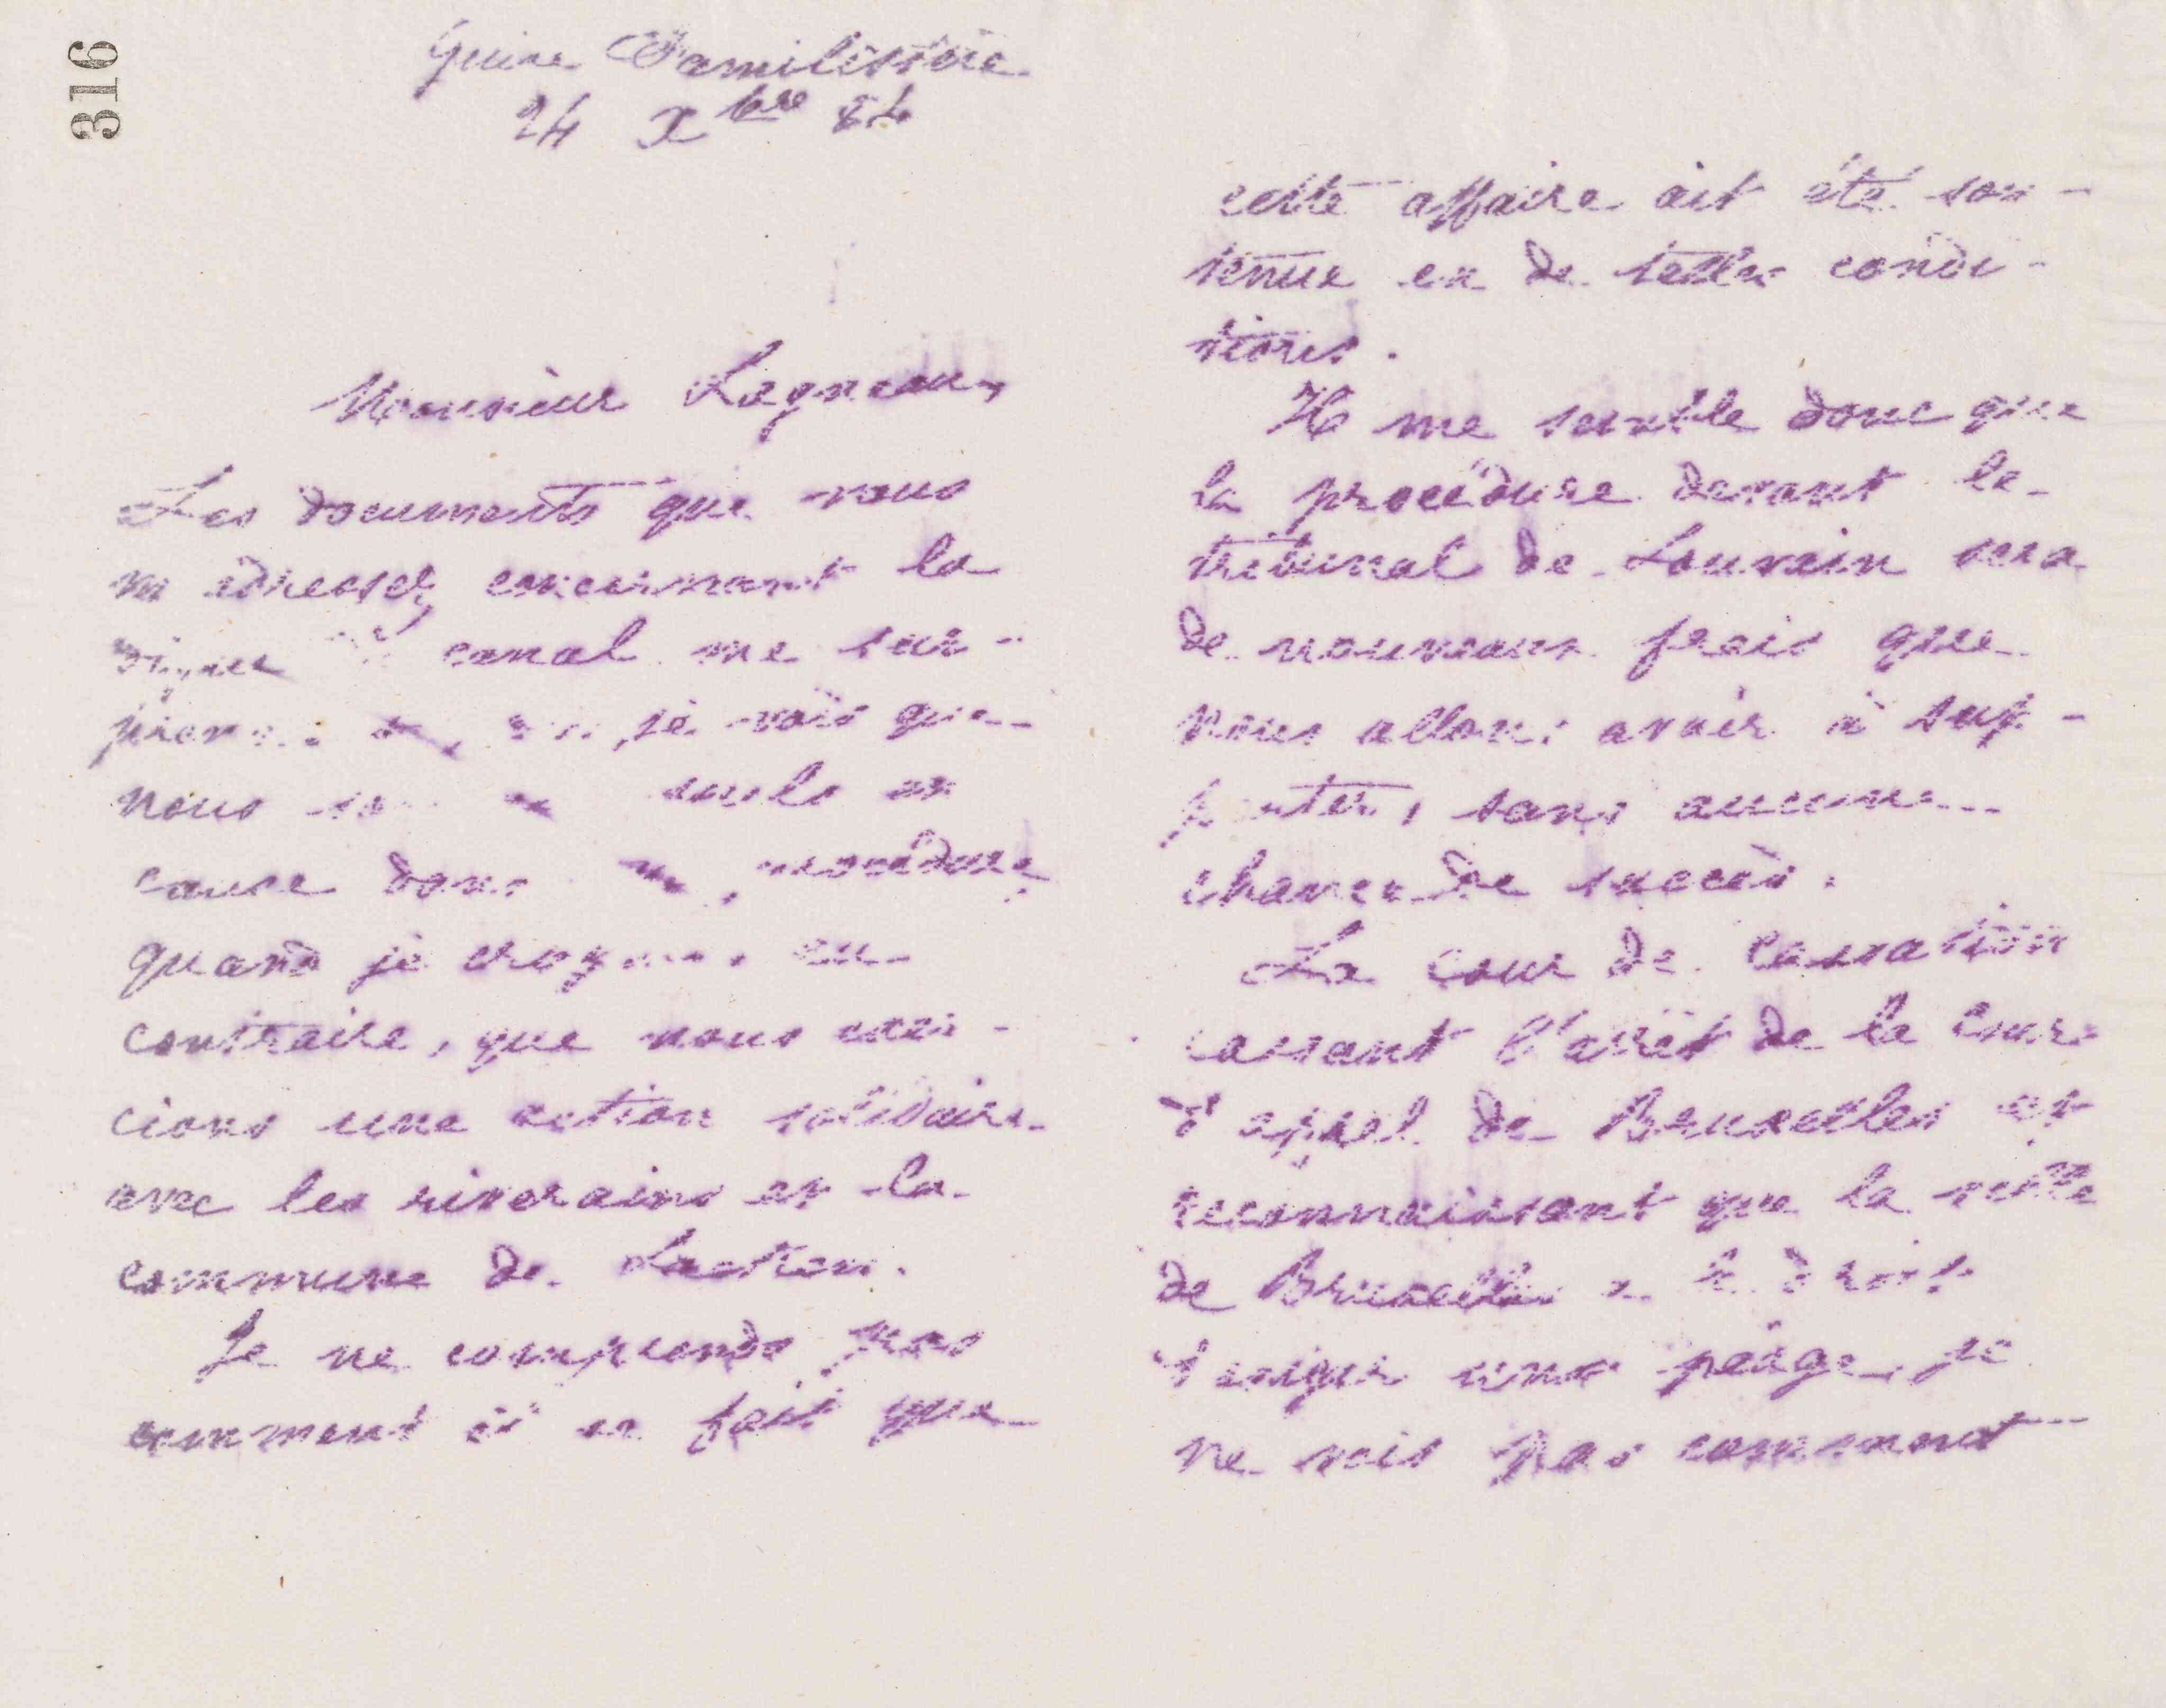 316
Guise Familistère
24 Xbre 84
Monsieur Lagneau,
Les documents que vous
m'adressez concernant la
canal me sur-
je vois que
nous seuls en
cause dans procédure
quand je au
contraire, que nous exer-
cions une action solidaire
avec les riverains et la
commune de Laeken.
Je ne comprends pas
comment il se fait que
cette affaire ait été sou-
tenue en de telles condi-
tions.
Il me semble donc que
la procédure devant le
tribunal de Louvain sera
de nouveaux frais que
nous allons avoir à sup-
porter, sans aucune
chance de succès.
La cour de Cassation
cassant l'arrêt de la Cour
d'appel de Bruxelles et
reconnaissant que la ville
de Bruxelles a le droit
d'exiger péage, je
ne vois pas comment